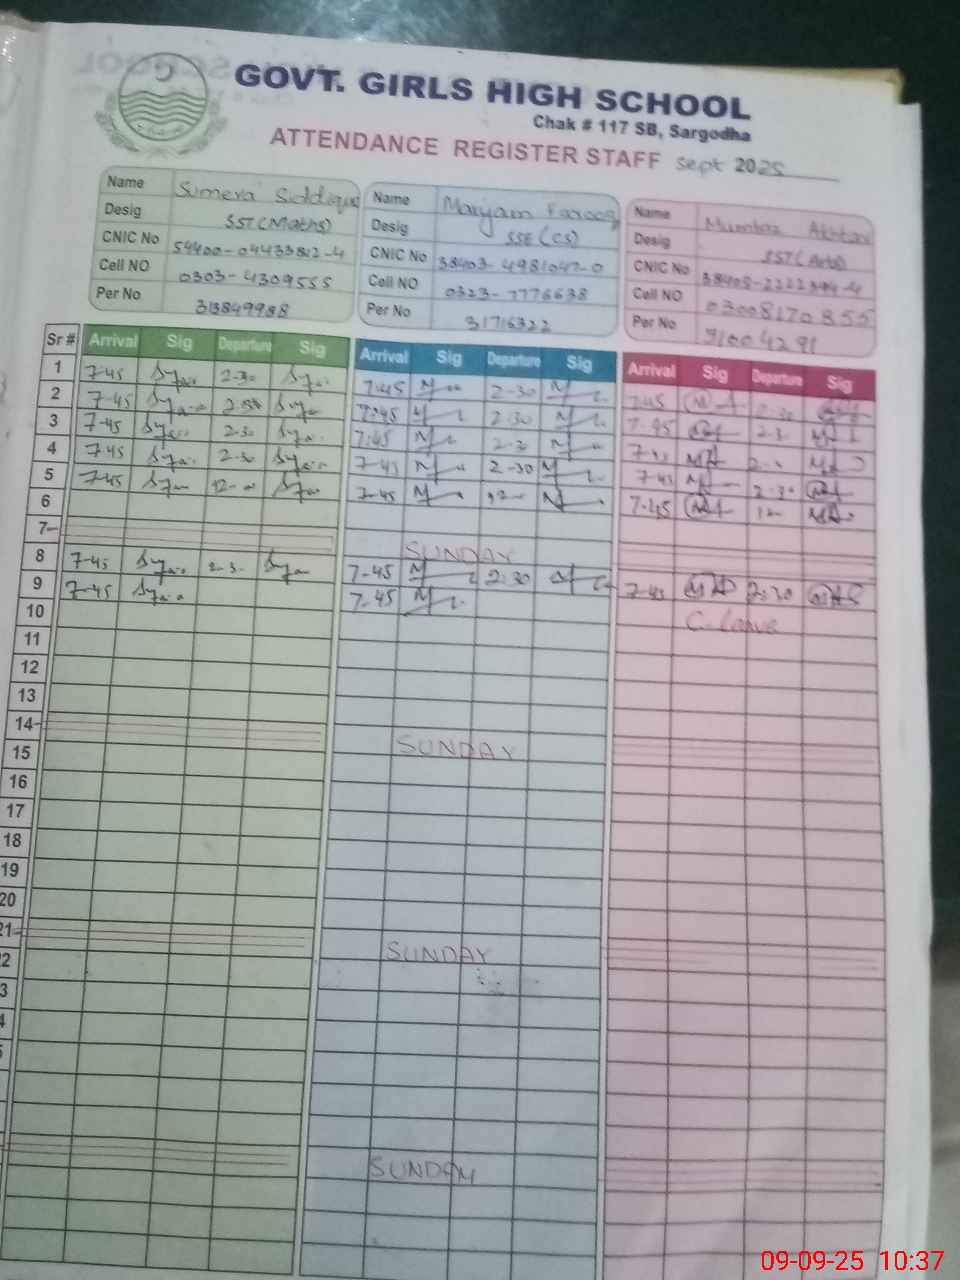 GOVT. GIRLS HIGH SCHOOL
Chak # 117 SB, Sargodha
ATTENDANCE REGISTER STAFF Sept 2025
Name Sumera Siddique
Desig SST (Maths)
CNIC No
Cell NO 0303-4309555
Per No
Name Maryam Farooq
Desig SSE (CS)
CNIC No 38403-4981047-0
Cell NO 0323-7776638
Per No 31716322
Name Mumtaz Akhtar
Desig SST (Arts)
CNIC No
Cell NO 03008170855
Per No 31004291
Sr # Arrival Sig Departure Sig Arrival Sig Departure Sig Arrival Sig Departure Sig
1 7-45 2-30 7:45 2-30 7-45 2-30
2 7-45 7:45 2:30 7-45
3 7-45 2-30 7:45
4 7-45 2-30 7-45 2-30 7-45 2-30
5 7-45 12- 7-45 12- 7-45 12-
6
7 SUNDAY
8 7-45 7-45 2:30 7-45 2:30
9 7-45 7-45 C. Leave
10
11
12
13
14 SUNDAY
15
16
17
18
19
20
21 SUNDAY
2
3
4
5
SUNDAY
09-09-25 10:37